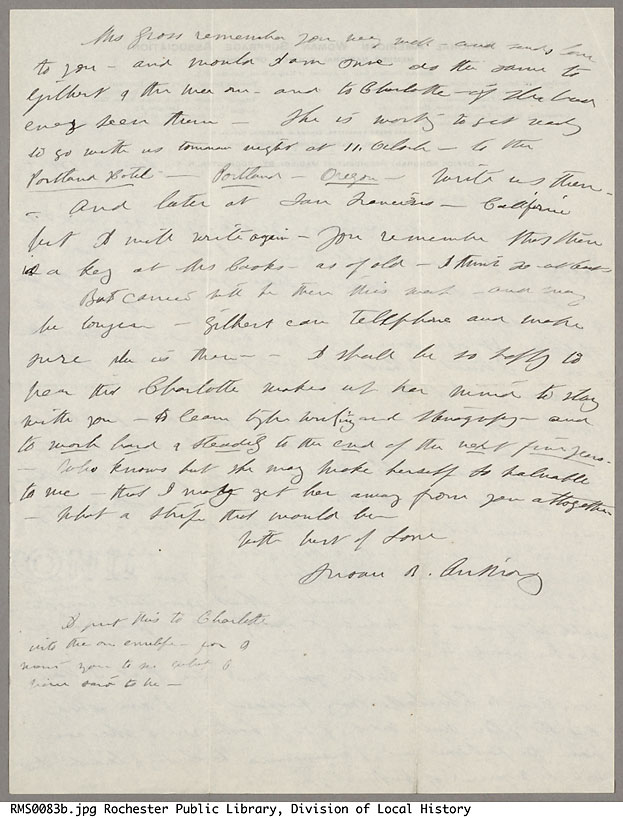 Mrs Gross remember you very well - and sends love
to you - and would I am sure do the same to
Gilbert & the wee one - and to Charlotte - if she had
ever seen them - She is working to get ready
to go with us tomorrow night at 11, Oclock - to the
Portland Hotel - Portland - Oregon - Write us there -
- And later at San Francisco - California
but I will write again - You remember that there
is a key at Mrs Cooks - as of old - I think so at least
But Carrie will be there this week - and may
be longer - Gilbert can Telephone and make
sure she is there - - I shall be so happy to
hear that Charlotte makes up her mind to stay
with you - & learn type writing and Stenography - and
to work hard & steadily to the end of the next five years -
- Who knows but she may make herself so valuable
to me - that I may get her away from you altogether
- What a strife that would be -
With best of love
Susan B. Anthony
I put this to Charlotte
into the one envelope - for I
want you to see what I
have said to her -
RMS0083b.jpg Rochester Public Library, Division of Local History